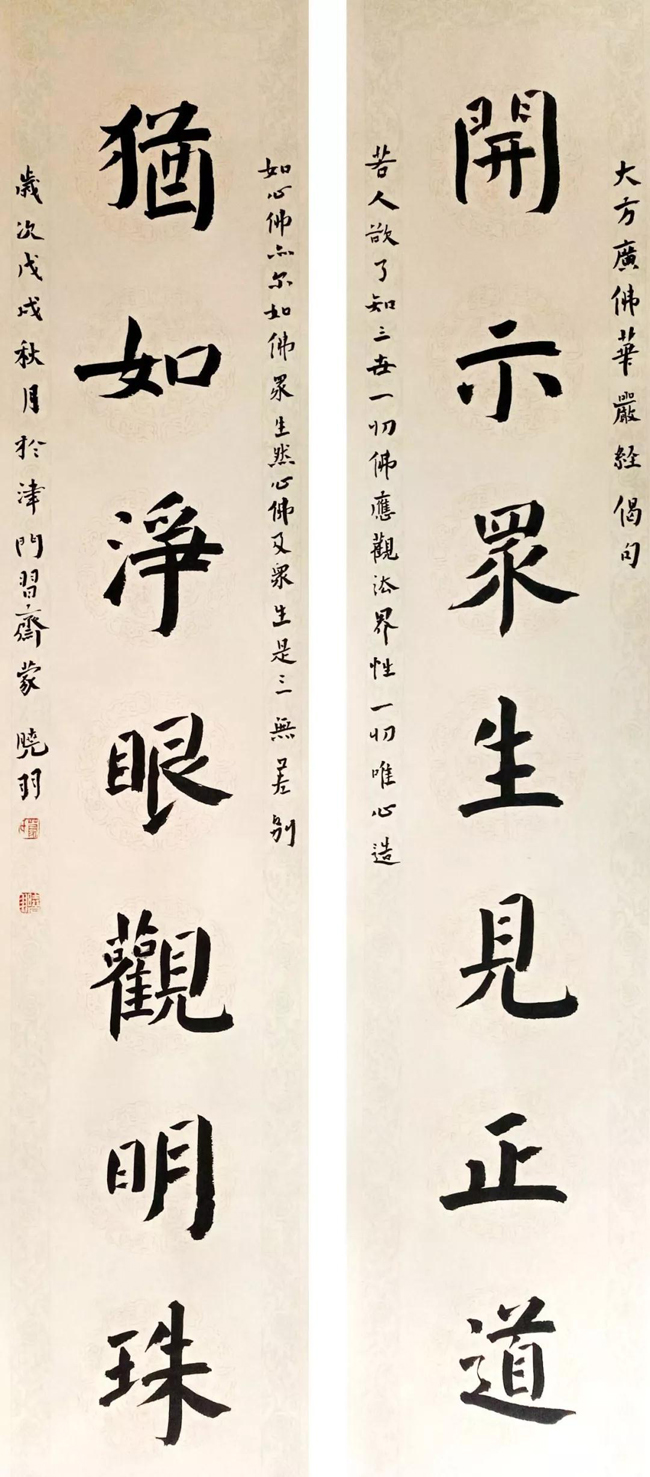 大方廣佛華嚴經偈句
開示眾生見正道
若人欲了知三世一切佛應觀法界性一切唯心造
如心佛亦尔如佛眾生然心佛及眾生是三無差別
猶如淨眼觀明珠
歲次戊戌秋月於津門習齋蒙曉羽